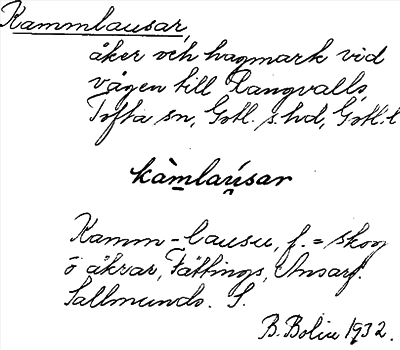 Kammlausar,
åker och hagmark vid
vägen till Langvalls,
Tofta sn, Gotl. s. hd, Gotl. l
kàmlau̯sar
Kamm-lausu, f. = skog
o åkrar, Fättings,
Sallmunds. S.
B. Bolin 1932.